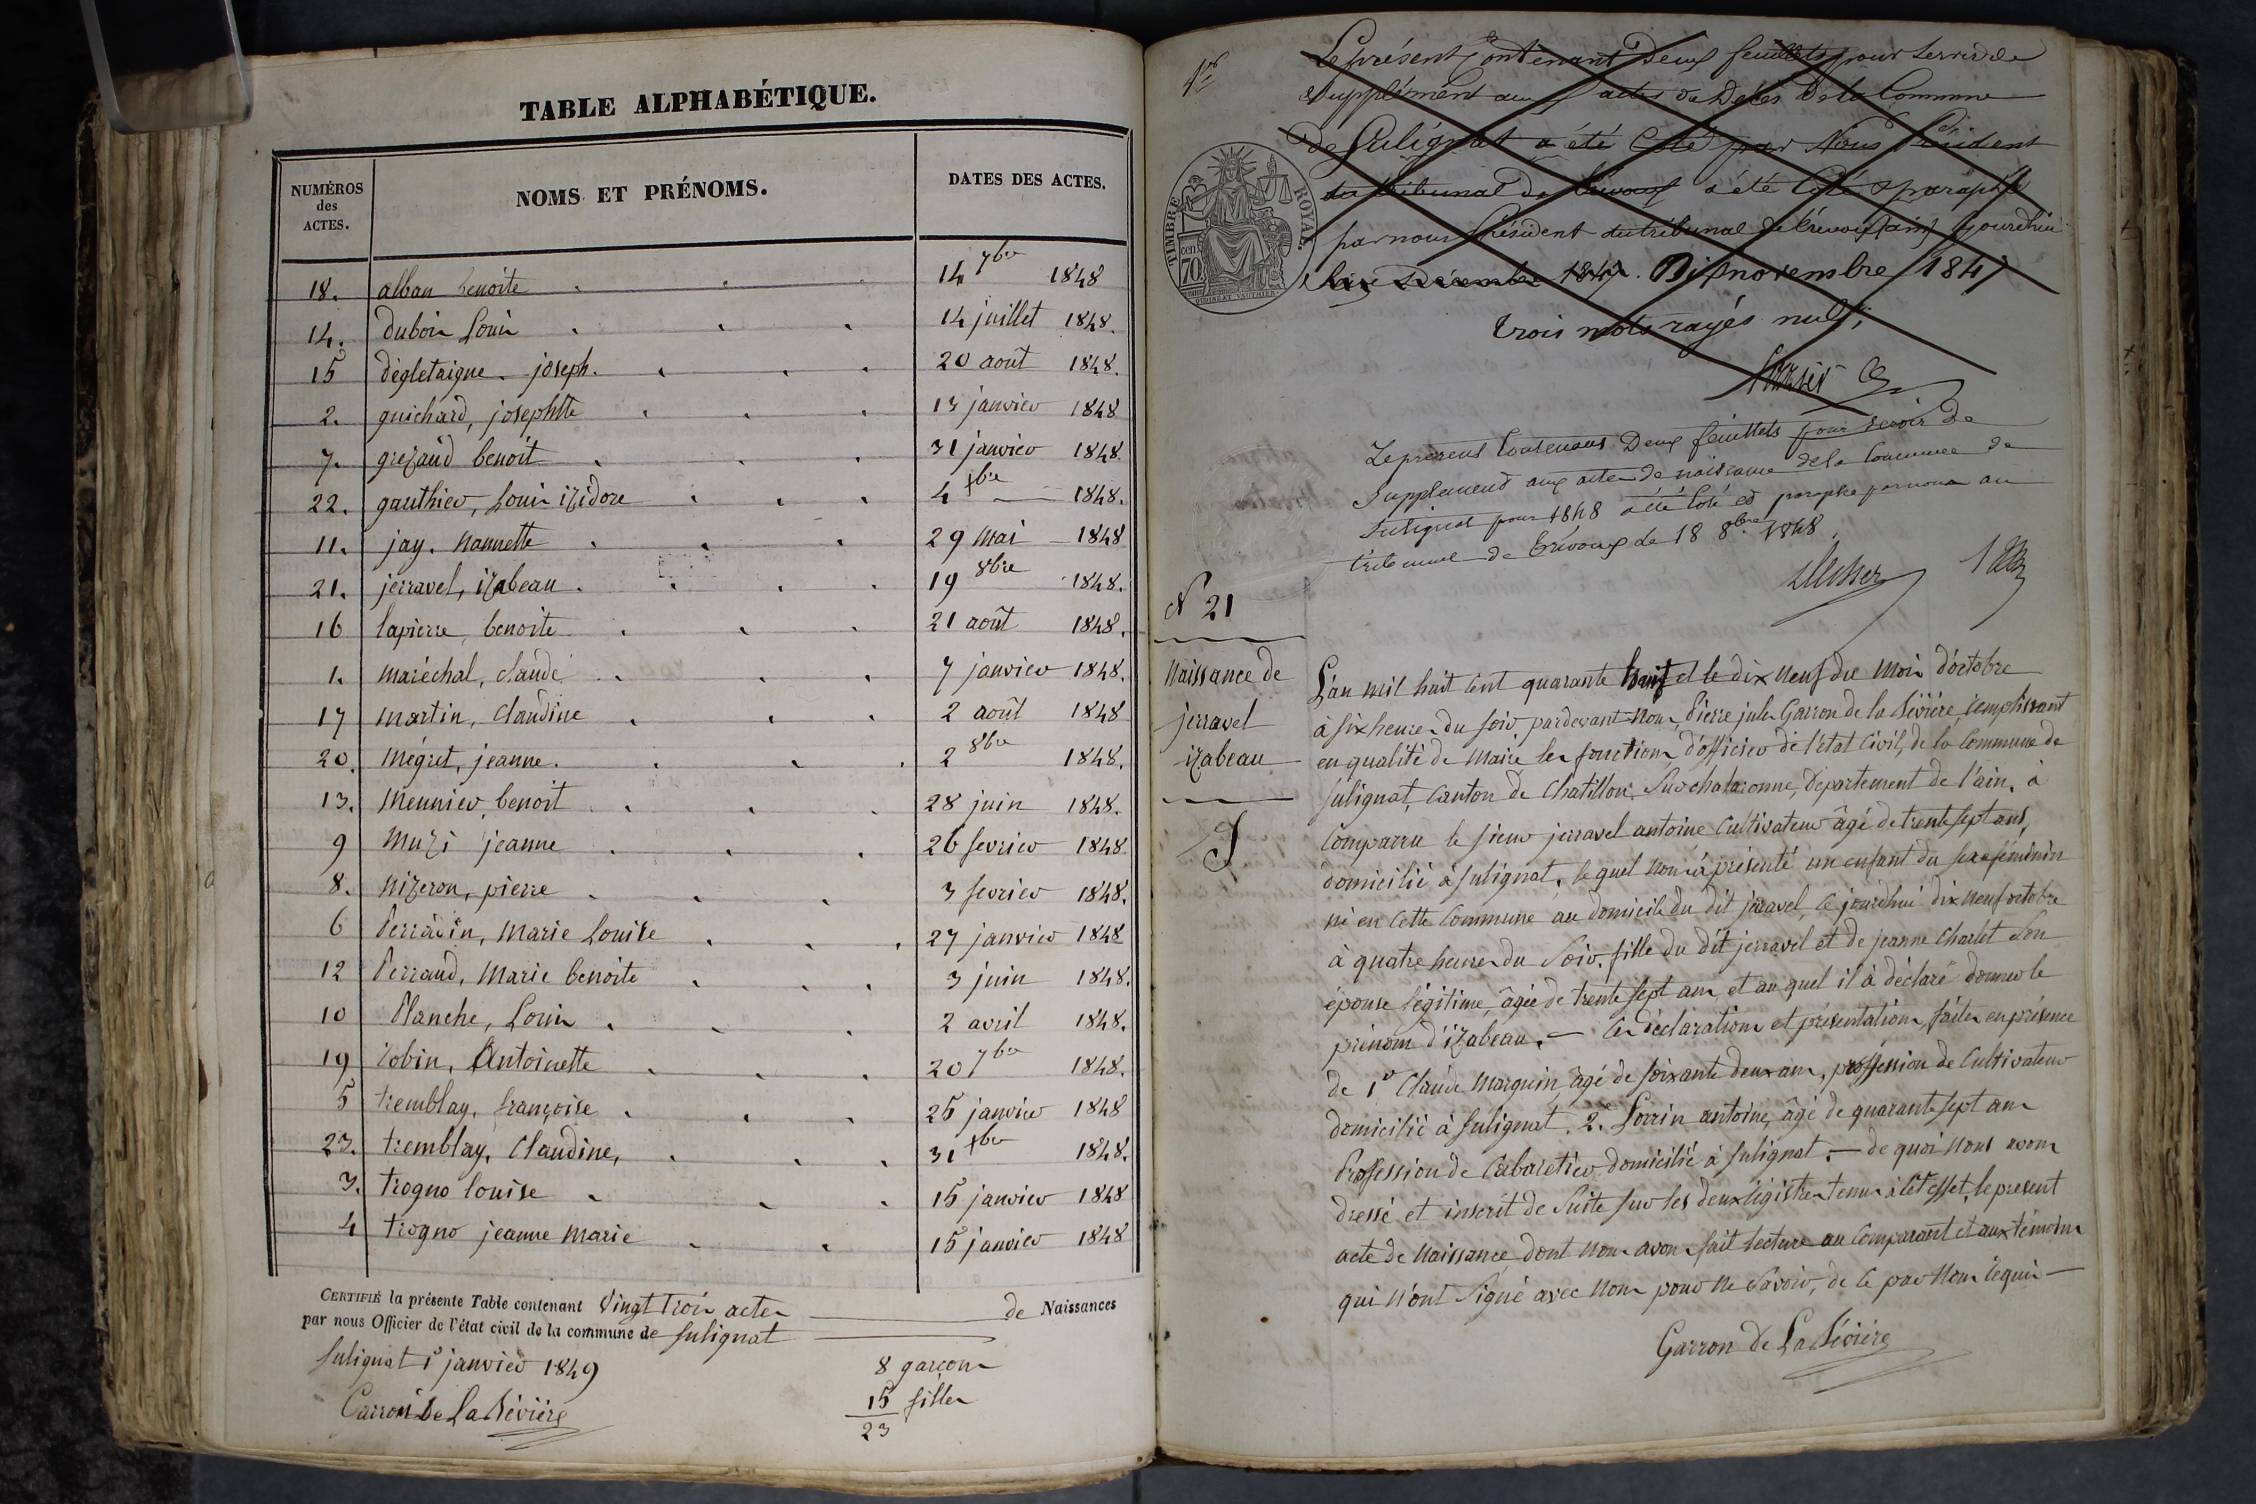 TABLE ALPHABÉTIQUE.
NUMÉROS des ACTES. NOMS ET PRÉNOMS. DATES DES ACTES.
18. alban benoite 14 7bre 1848
14. dubois Louis 14 juillet 1848.
15 dégletaigne joseph. 20 août 1848.
2. guichard, josephtte 13 janvier 1848
7. grezaud benoit 31 janvier 1848
22. gauthier, Louis izidore 4 xbre 1848.
11. jay. Nannette 29 Mai 1848
21. jerravel, izabeau. 19 8bre 1848.
16 lapierre, benoite 21 août 1848.
1. maréchal, claude 7 janvier 1848.
17 martin, Claudine 2 août 1848
20. mégret, jeanne. 2 8bre 1848.
13. Meunier, benoit 28 juin 1848.
9 Muzi jeanne 26 fevrier 1848
8. Nizeron, pierre 3 fevrier 1848.
6 Perracin, Marie Louise 27 janvier 1848
12 Perraud, Marie benoite 3 juin 1848.
10 Planche, Louis 2 avril 1848.
19 robin, Antoinette 20 7bre 1848.
5 tremblay, françoise 25 janvier 1848
23. tremblay, Claudine, 31 xbre 1848.
3. trogno louise 15 janvier 1848
4 trogno jeanne Marie 15 janvier 1848
CERTIFIÉ la présente Table contenant Vingt trois actes de Naissances
par nous Officier de l'état civil de la commune de Sulignat
Sulignat 1er janvier 1849
8 garçons
15 filles
23
Garron de La Bévière
1er
TIMBRE ROYAL.
70 cen.
Le présent contenant Deux feuillets pour servir de
Supplément aux actes de Décès de la Commune
de Sulignat a été Coté par Nous Président
du tribunal de Trévoux a été Coté et paraphé
par nous Président du tribunal de Trévoux (ain) ajourdhui
Décembre 1847. Dix novembre 1847
trois mots rayés nuls.
Le présent Contenant Deux feuillets pour servir de
Supplement aux actes de naissance de la Commune de
Sulignat pour 1848 a été Coté et paraphe par nous au
tribunal de Trévoux le 18 8bre 1848.
N 21
Naissance de
jerravel
izabeau
L'an mil huit cent quarante huit et le dix neuf du Mois d'octobre
à six heures du soir, pardevant Nous, Pierre jules Garron de la Bévière, remplissant
en qualité de Maire les fonctions d'officier de l'état Civil, de la Commune de
Sulignat, Canton de Chatillon Sur chalaronne, Département de l'ain, à
Comparru le Sieur jerravel antoine Cultivateur âgé de trente sept ans,
domicilié à Sulignat, lequel Nous à présenté un enfant du sexe féminin
né en Cette Commune au domicile du dit jerravel, ce jourdhui dix neuf octobre
à quatre heures du Soir, fille du dit jerravel et de jeanne Charlet Son
épouse légitime, âgée de trente sept ans, et au quel il à déclaré donner le
prénom d'izabeau. — Ces déclarations et présentations faites en présence
de 1er Claude Marguin, âgé de soixante deux ans, profession de Cultivateur
domicilié à Sulignat. 2e antoine, âgé de quarante sept ans
Profession de Cabaretier domicilié à Sulignat. — de quoi Nous avons
dressé et inscrit de Suite sur les deux régistres tenus à cet effet, le présent
acte de Naissance, dont Nous avons fait lecture au Comparant et aux témoins
qui n'ont Signé avec Nous pour ne Savoir, de ce par Nous requis —
Garron de La Bévière